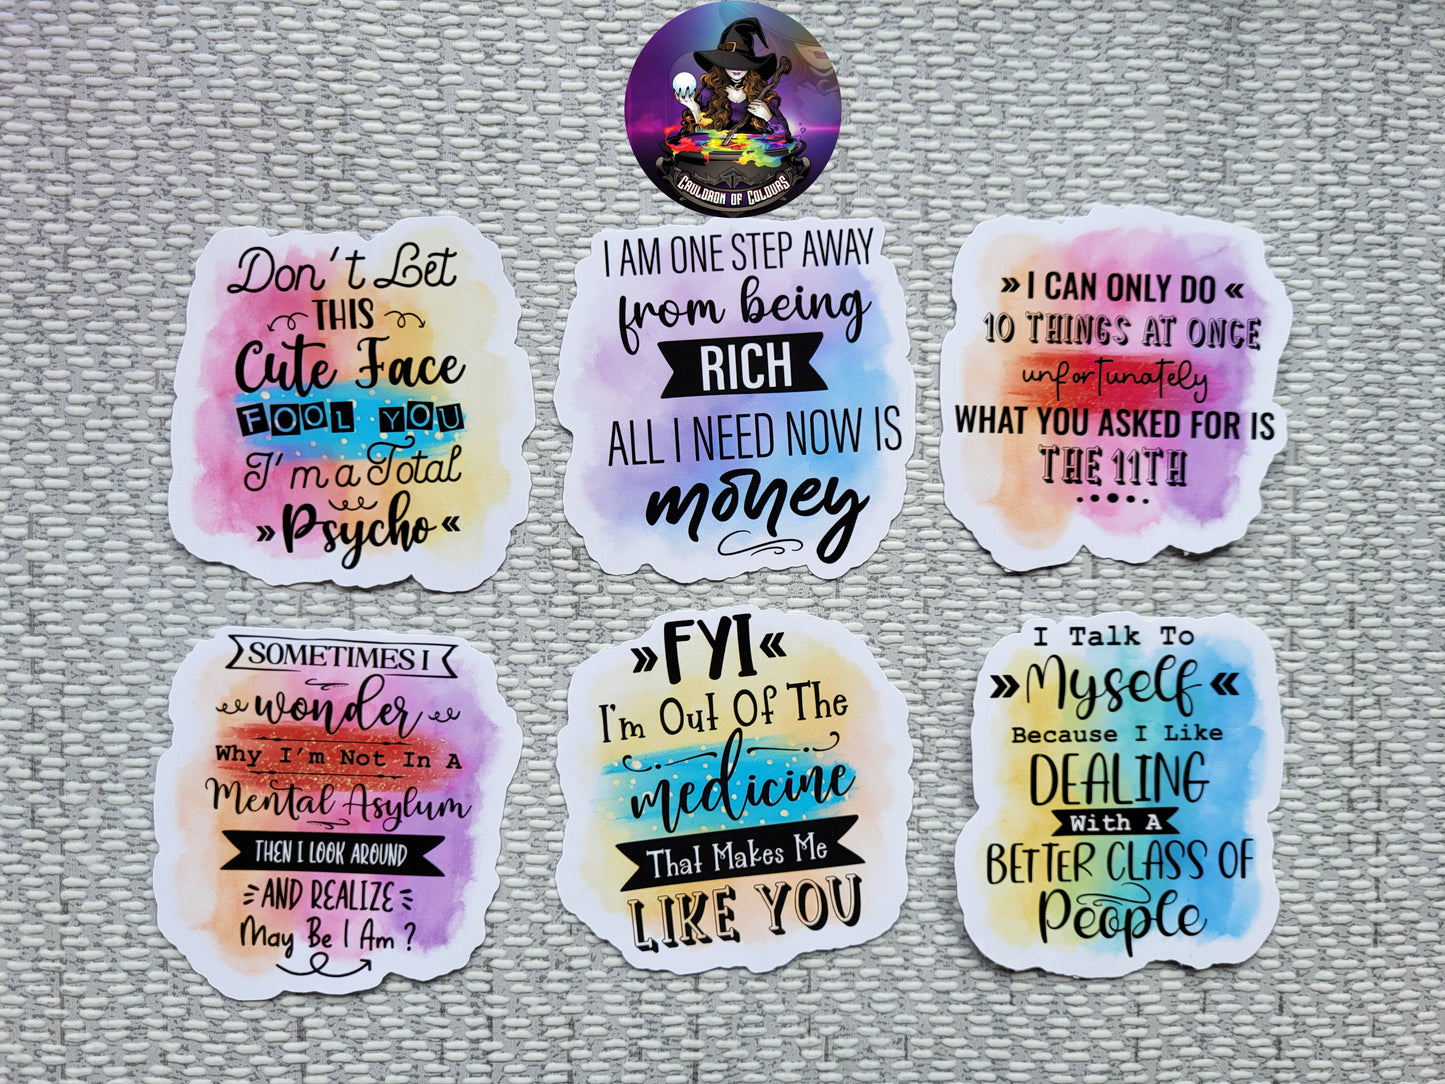 Cauldron of Colours
Don't Let
THIS
Cute Face
FOOL YOU
I'm a Total
»Psycho«
I AM ONE STEP AWAY
from being
RICH
ALL I NEED NOW IS
money
» I CAN ONLY DO «
10 THINGS AT ONCE
unfortunately
WHAT YOU ASKED FOR IS
THE 11TH
SOMETIMES I
wonder
Why I'm Not In A
Mental Asylum
THEN I LOOK AROUND
AND REALIZE
May Be I Am ?
»FYI«
I'm Out Of The
medicine
That Makes Me
LIKE YOU
I Talk To
»Myself«
Because I Like
DEALING
With A
BETTER CLASS OF
People